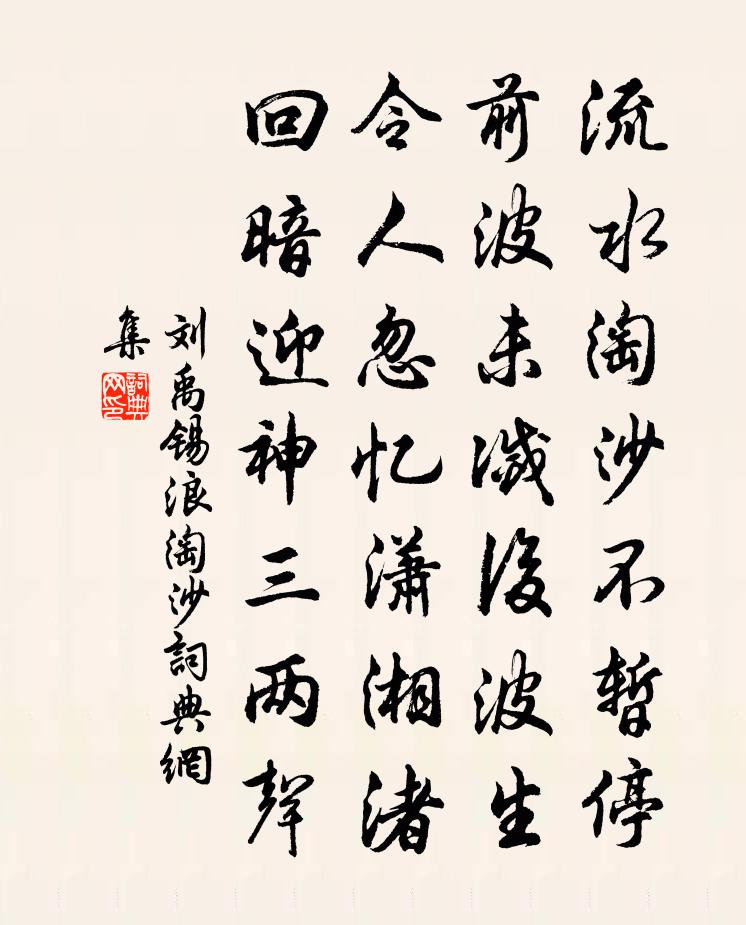 流水淘沙不暂停
前波未滅後波生
令人忽忆瀟湘渚
回暗迎神三两聲
刘禹锡浪淘沙詞典網
集
詞典网印